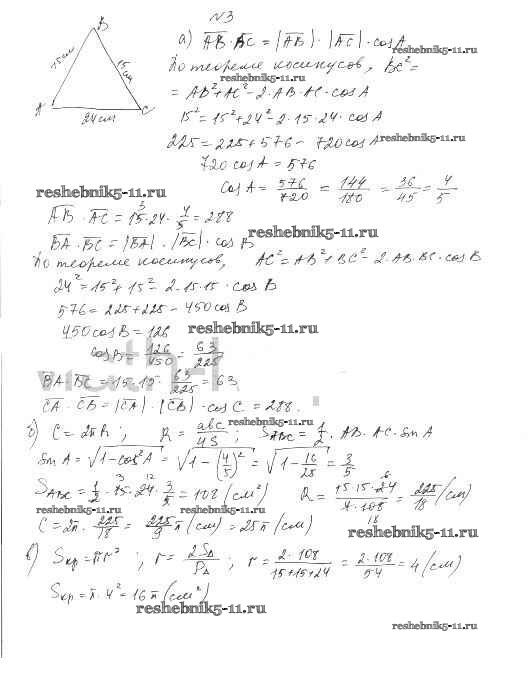 N3
B
15 см
15 см
A
C
24 см
a) AB · BC = |AB| · |AC| · cos A
reshebnik5-11.ru
По теореме косинусов, BC² =
reshebnik5-11.ru
= AB² + AC² - 2 · AB · AC · cos A
15² = 15² + 24² - 2 · 15 · 24 · cos A
225 = 225 + 576 - 720 cos A
reshebnik5-11.ru
720 cos A = 576
reshebnik5-11.ru
cos A = 576/720 = 144/180 = 36/45 = 4/5
AB · AC = 15 · 24 · 4/5 = 288
3
reshebnik5-11.ru
BA · BC = |BA| · |BC| · cos B
По теореме косинусов, AC² = AB² + BC² - 2 · AB · BC · cos B
24² = 15² + 15² - 2 · 15 · 15 · cos B
576 = 225 + 225 - 450 cos B
450 cos B = 126
reshebnik5-11.ru
cos B = 126/450 = 63/225
BA · BC = 15 · 15 · 63/225 = 63
CA · CB = |CA| · |CB| · cos C = 288.
б) C = 2πR; R = abc/4S; S ABC = 1/2 · AB · AC · sin A
sin A = √1 - cos² A = √1 - (4/5)² = √1 - 16/25 = 3/5
S ABC = 1/2 · 15 · 24 · 3/5 = 108 (см²)
3 12
R = 15·15·24/4·108 = 225/18 (см)
6
18
reshebnik5-11.ru
reshebnik5-11.ru
C = 2π · 225/18 = 225/9 π (см) = 25π (см)
reshebnik5-11.ru
в) Sкр = πr²; r = 2S∆/P∆; r = 2·108/15+15+24 = 2·108/54 = 4 (см)
Sкр = π · 4² = 16π (см²)
reshebnik5-11.ru
reshebnik5-11.ru